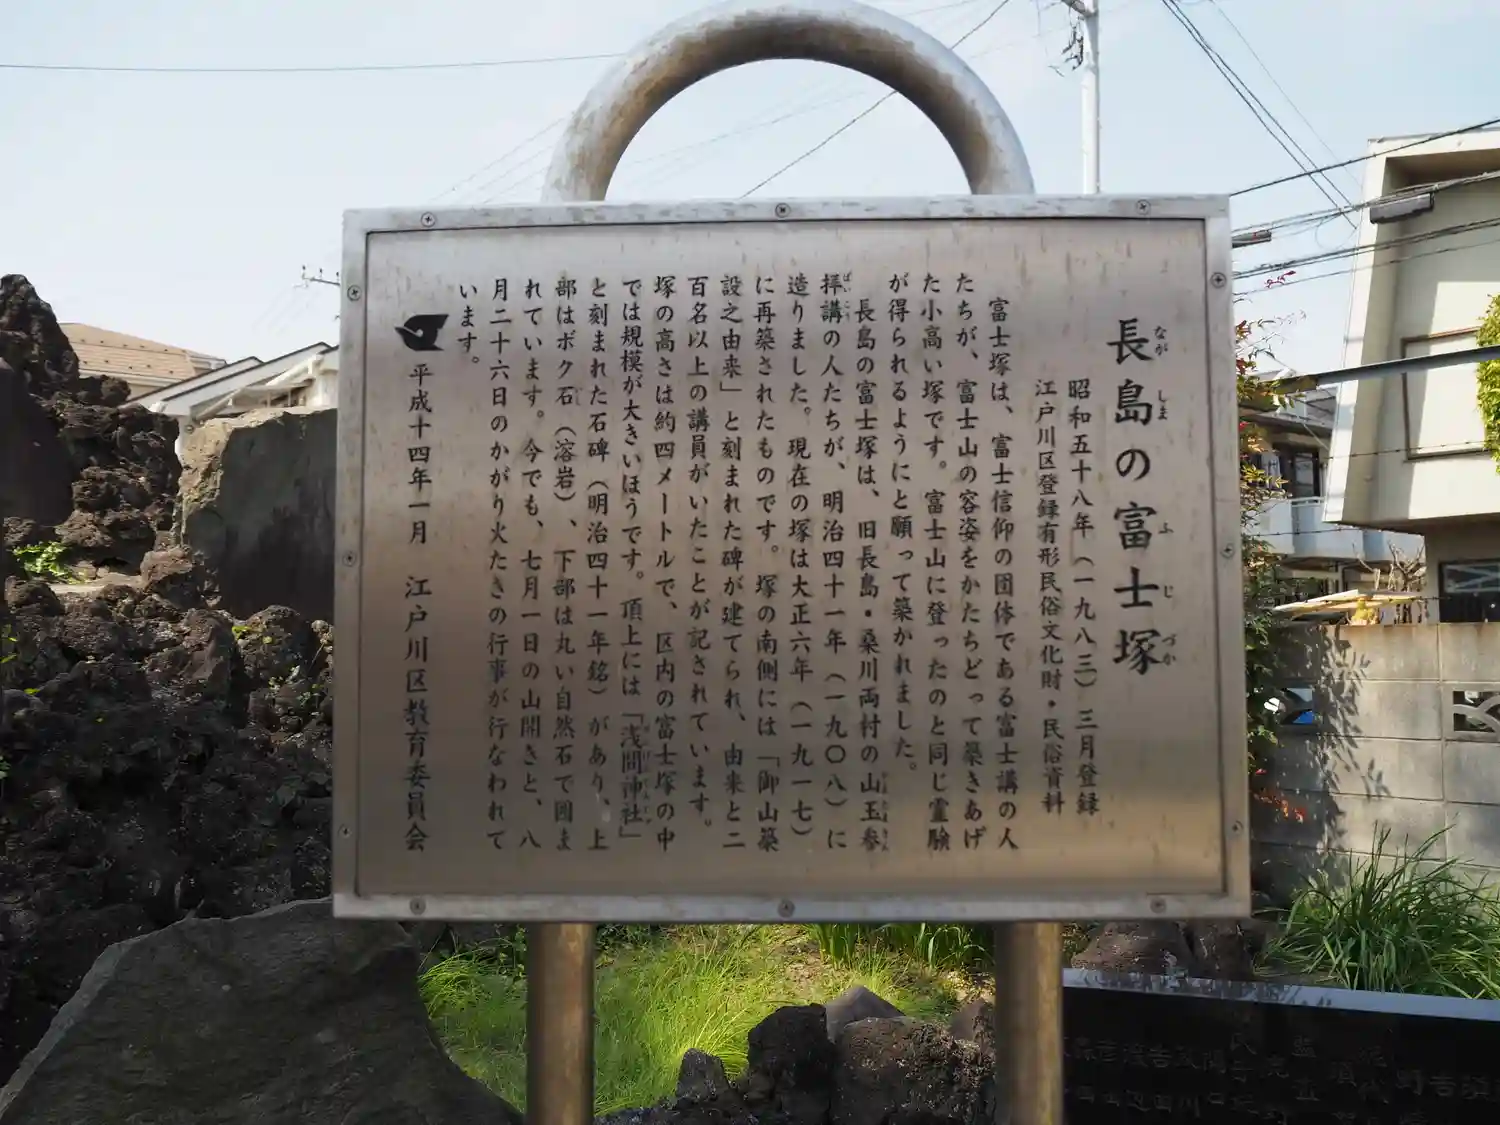 長島の富士塚
ながしま ふじづか
昭和五十八年（一九八三）三月登録
江戸川区登録有形民俗文化財・民俗資料
富士塚は、富士信仰の団体である富士講の人
たちが、富士山の容姿をかたちどって築きあげ
た小高い塚です。富士山に登ったのと同じ霊験
が得られるようにと願って築かれました。
長島の富士塚は、旧長島・桑川両村の山玉参
拝講の人たちが、明治四十一年（一九〇八）に
造りました。現在の塚は大正六年（一九一七）
に再築されたものです。塚の南側には「御山築
設之由来」と刻まれた碑が建てられ、由来と二
百名以上の講員がいたことが記されています。
塚の高さは約四メートルで、区内の富士塚の中
では規模が大きいほうです。頂上には「浅間神社」
と刻まれた石碑（明治四十一年銘）があり、上
部はボク石（溶岩）、下部は丸い自然石で囲ま
れています。今でも、七月一日の山開きと、八
月二十六日のかがり火たきの行事が行なわれて
います。
平成十四年一月 江戸川区教育委員会